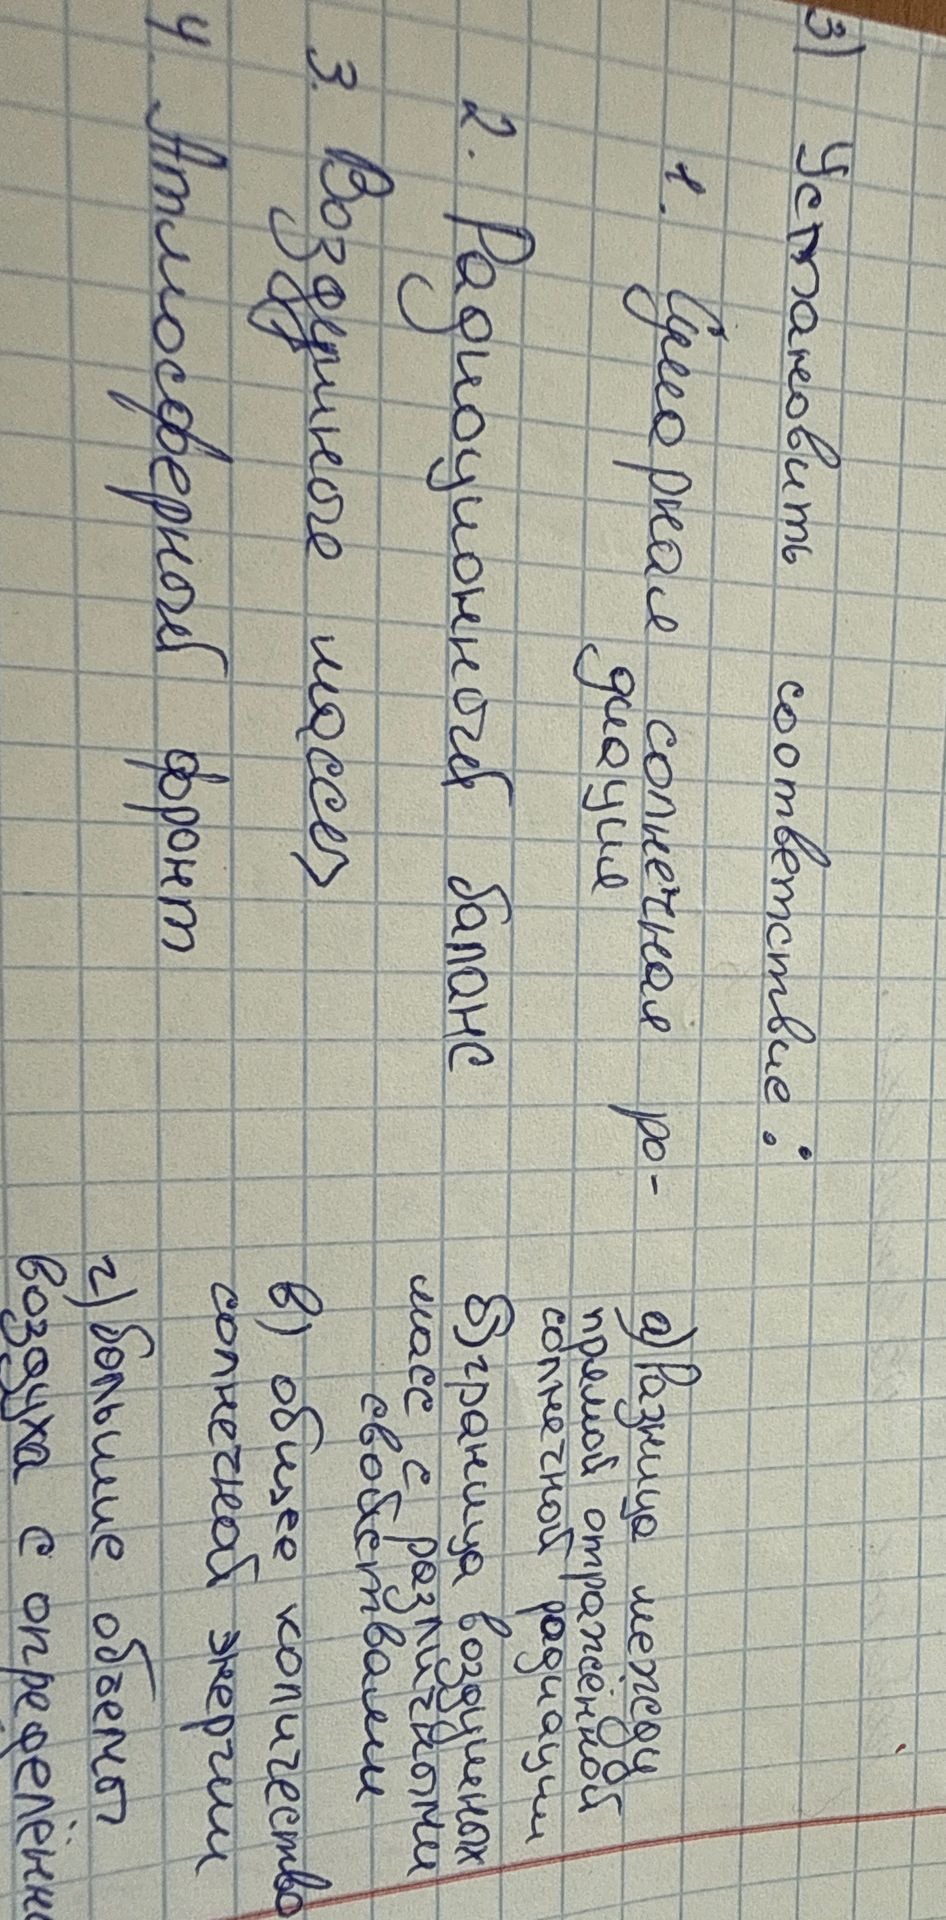 3) Установить соответствие:
1. Суммарная солнечная ра-
диация
2. Радиационный баланс
3. Воздушные массы
4. Атмосферный фронт
а) Разница между
прямой отражённой
солнечной радиации
б) граница воздушных
масс с различными
свойствами
в) общее количество
солнечной энергии
г) большие объемы
воздуха с определённы